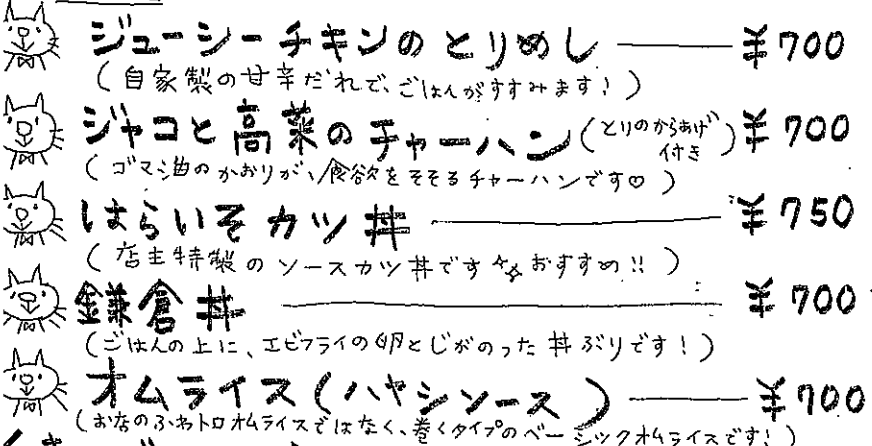 ジューシーチキンのとりめし ¥700
(自家製の甘辛だれで、ごはんがすすみます!)
ジャコと高菜のチャーハン(とりのからあげ付き) ¥700
(ゴマ油のかおりが、食欲をそそるチャーハンです♡)
はらいそカツ丼 ¥750
(店主特製のソースカツ丼です☆☆おすすめ!!)
鎌倉丼 ¥700
(ごはんの上に、エビフライの卵とじがのった丼ぶりです!)
オムライス(ハヤシソース) ¥700
(おなのふわトロオムライスではなく、巻くタイプのベーシックオムライスです!)